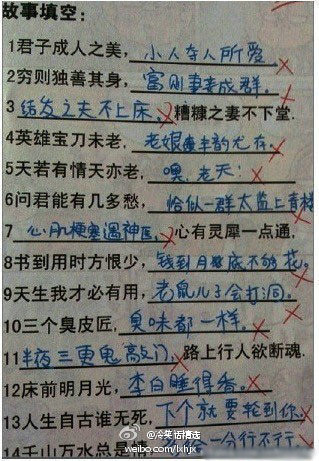 故事填空:
1君子成人之美,小人夺人所爱。
2穷则独善其身,富则妻妾成群。
3结发之夫不上床,糟糠之妻不下堂.
4英雄宝刀未老,老娘风韵尤存。
5天若有情天亦老,噢,老天!
6问君能有几多愁,恰似一群太监上青楼
7心肌梗塞遇神医,心有灵犀一点通.
8书到用时方恨少,钱到月底不够花。
9天生我才必有用,老鼠儿子会打洞。
10三个臭皮匠,臭味都一样。
11半夜三更鬼敲门,路上行人欲断魂.
12床前明月光,李白睡得香。
13人生自古谁无死,下个就要轮到你。
14千山万水总是情,一分行不行。
@冷笑话精选
weibo.com/lxhjx